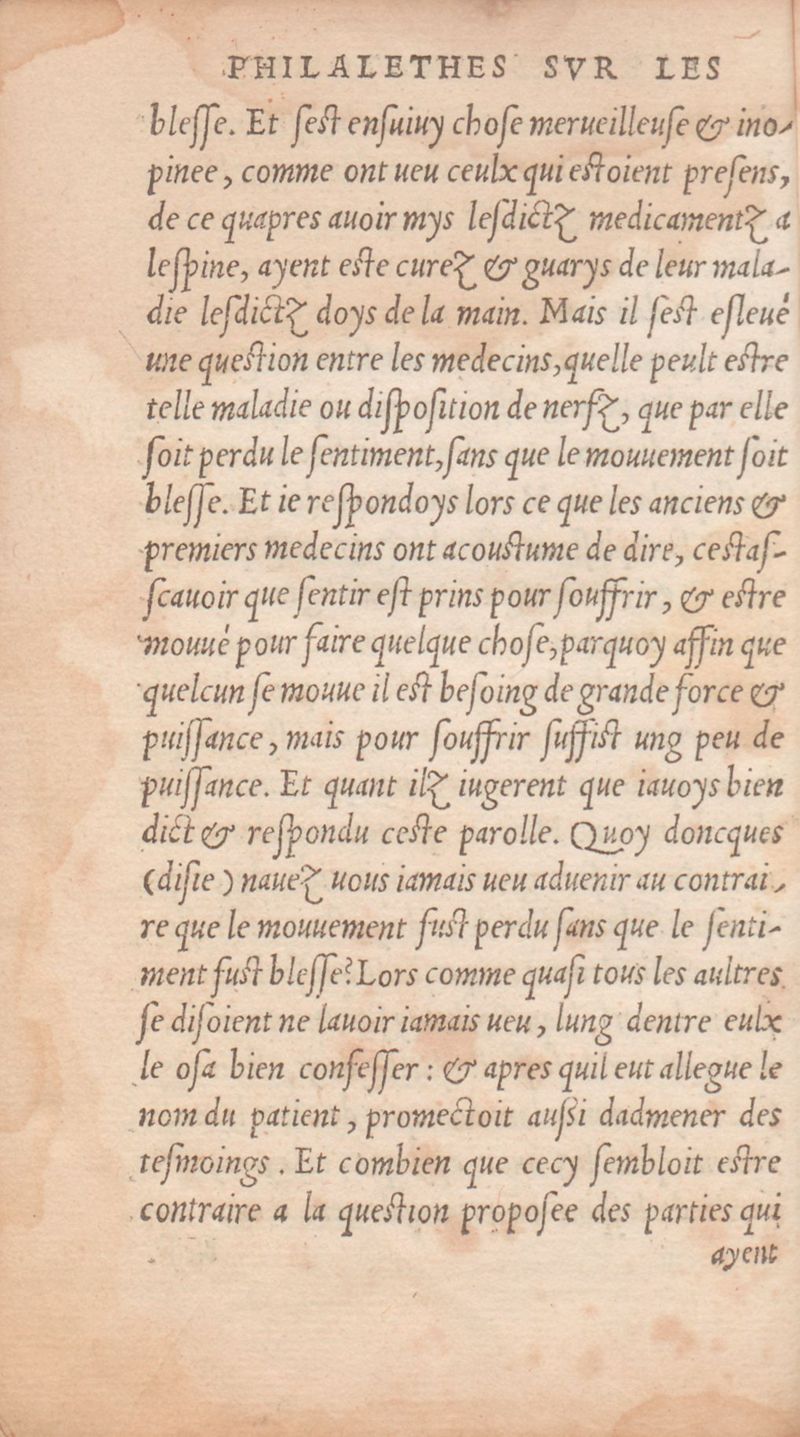 PHILALETHES SVR LES
blesse. Et sest ensuiuy chose merueilleuse & ino-
pinee, comme ont ueu ceulx qui estoient presens,
de ce quapres auoir mys lesdictz medicamentz a
lespine, ayent este curez & guarys de leur mala-
die lesdictz doys de la main. Mais il sest esleué
une question entre les medecins, quelle peult estre
telle maladie ou disposition de nerfz, que par elle
soit perdu le sentiment, sans que le mouuement soit
blesse. Et ie respondoys lors ce que les anciens &
premiers medecins ont acoustume de dire, cestas-
scauoir que sentir est prins pour souffrir, & estre
mouué pour faire quelque chose, parquoy affin que
quelcun se mouue il est besoing de grande force &
puissance, mais pour souffrir suffist ung peu de
puissance. Et quant ilz iugerent que iauoys bien
dict & respondu ceste parolle. Quoy doncques
(disie) nauez uous iamais ueu aduenir au contrai-
re que le mouuement fust perdu sans que le senti-
ment fust blesse? Lors comme quasi tous les aultres
se disoient ne lauoir iamais ueu, lung dentre eulx
le osa bien confesser : & apres quil eut allegue le
nom du patient, promectoit aussi dadmener des
tesmoings. Et combien que cecy sembloit estre
contraire a la question proposee des parties qui
ayent